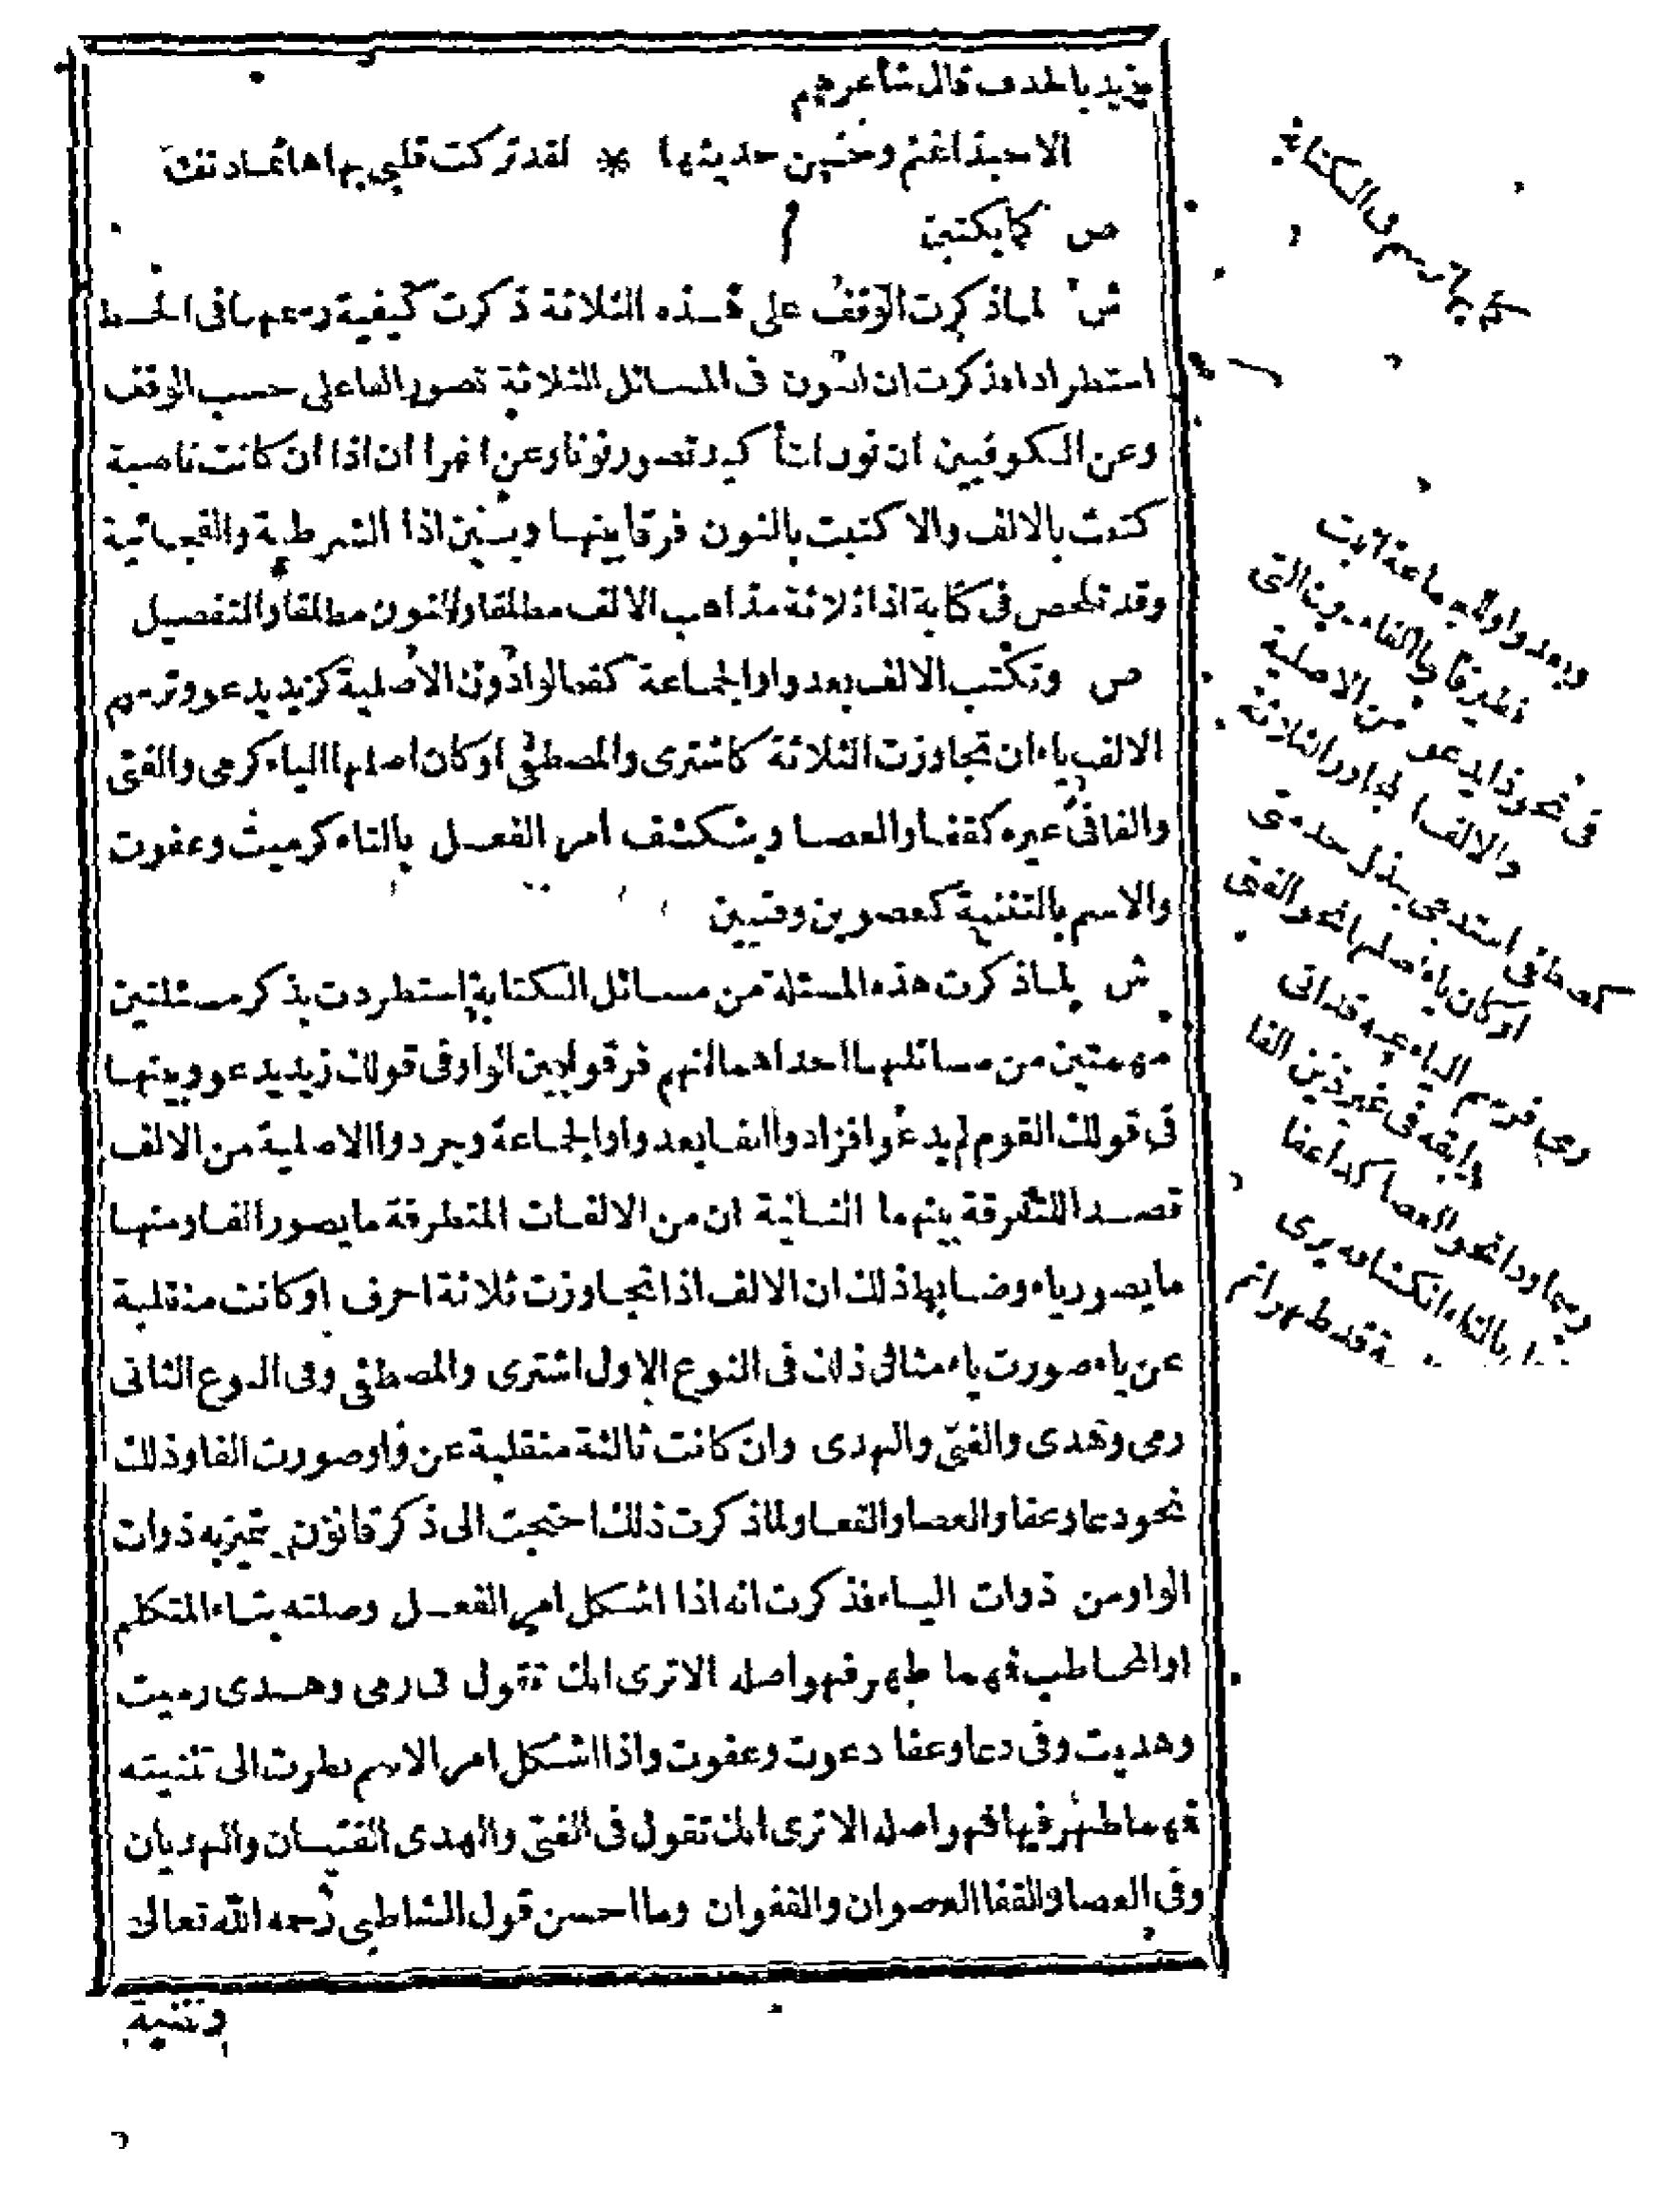 زيد بالحذف قال شاعرهم
الا حبذا غنم وحسن حديثها * لقد تركت قلبي بها هائما دنف
ص كما يكتبن
ش لما ذكرت الوقف على هذه الثلاثة ذكرت كيفية رسمها فى الخط
استطرادا فذكرت ان النون فى المسائل الثلاثة تصور الفا على حسب الوقف
وعن الكوفيين ان نون التأكيد تصور نونا وعن الفراء ان اذا ان كانت ناصبة
كتبت بالالف والا كتبت بالنون فرقا بينها وبين اذا الشرطية والفجائية
وقد تلخص فى كتابة اذا ثلاثة مذاهب الالف مطلقا والنون مطلقا والتفصيل
ص وتكتب الالف بعد واو الجماعة كقالوا دون الاصلية كزيد يدعو وترسم
الالف ياء ان تجاوزت الثلاثة كاشترى والمصطفى او كان اصلها الياء كرمى والفتى
والفا فى غيره كقفا والعصا وينكشف امر الفعل بالتاء كرميت وعفوت
والاسم بالتثنية كعصوين وفتيين
ش لما ذكرت هذه المسئلة من مسائل الكتابة استطردت بذكر مسئلتين
مهمتين من مسائلها احداهما انهم فرقوا بين الواو فى قولك زيد يدعو وبينها
فى قولك القوم لم يدعوا فزادوا الفا بعد واو الجماعة وجردوا الاصلية من الالف
قصدا للتفرقة بينهما الثانية ان من الالفات المتطرفة ما يصور الفا ومنها
ما يصور ياء وضابط ذلك ان الالف اذا تجاوزت ثلاثة احرف او كانت منقلبة
عن ياء صورت ياء مثال ذلك فى النوع الاول اشترى والمصطفى وفى النوع الثانى
رمى وهدى والفتى والهدى وان كانت ثالثة منقلبة عن واو صورت الفا وذلك
نحو دعا وعفا والعصا والقفا ولما ذكرت ذلك احتجت الى ذكر قانون يتميز به ذوات
الواو من ذوات الياء فذكرت انه اذا اشكل امر الفعل وصلته بتاء المتكلم
او المخاطب فهما ظهر فهو اصله الا ترى انك تقول فى رمى وهدى رميت
وهديت وفى دعا وعفا دعوت وعفوت واذا اشكل امر الاسم نظرت الى تثنيته
فهما ظهر فيها فهو اصله الا ترى انك تقول فى الفتى والهدى الفتيان والهديان
وفى العصا والقفا العصوان والقفوان وما احسن قول الشاطبى رحمه الله تعالى
وتثنية
وبعد واو
فى نحو ذا يدعو من الاصلية
والالف
او كان ياء اصل نحو الفتى
فى غير ذين الفا
نحو العصا